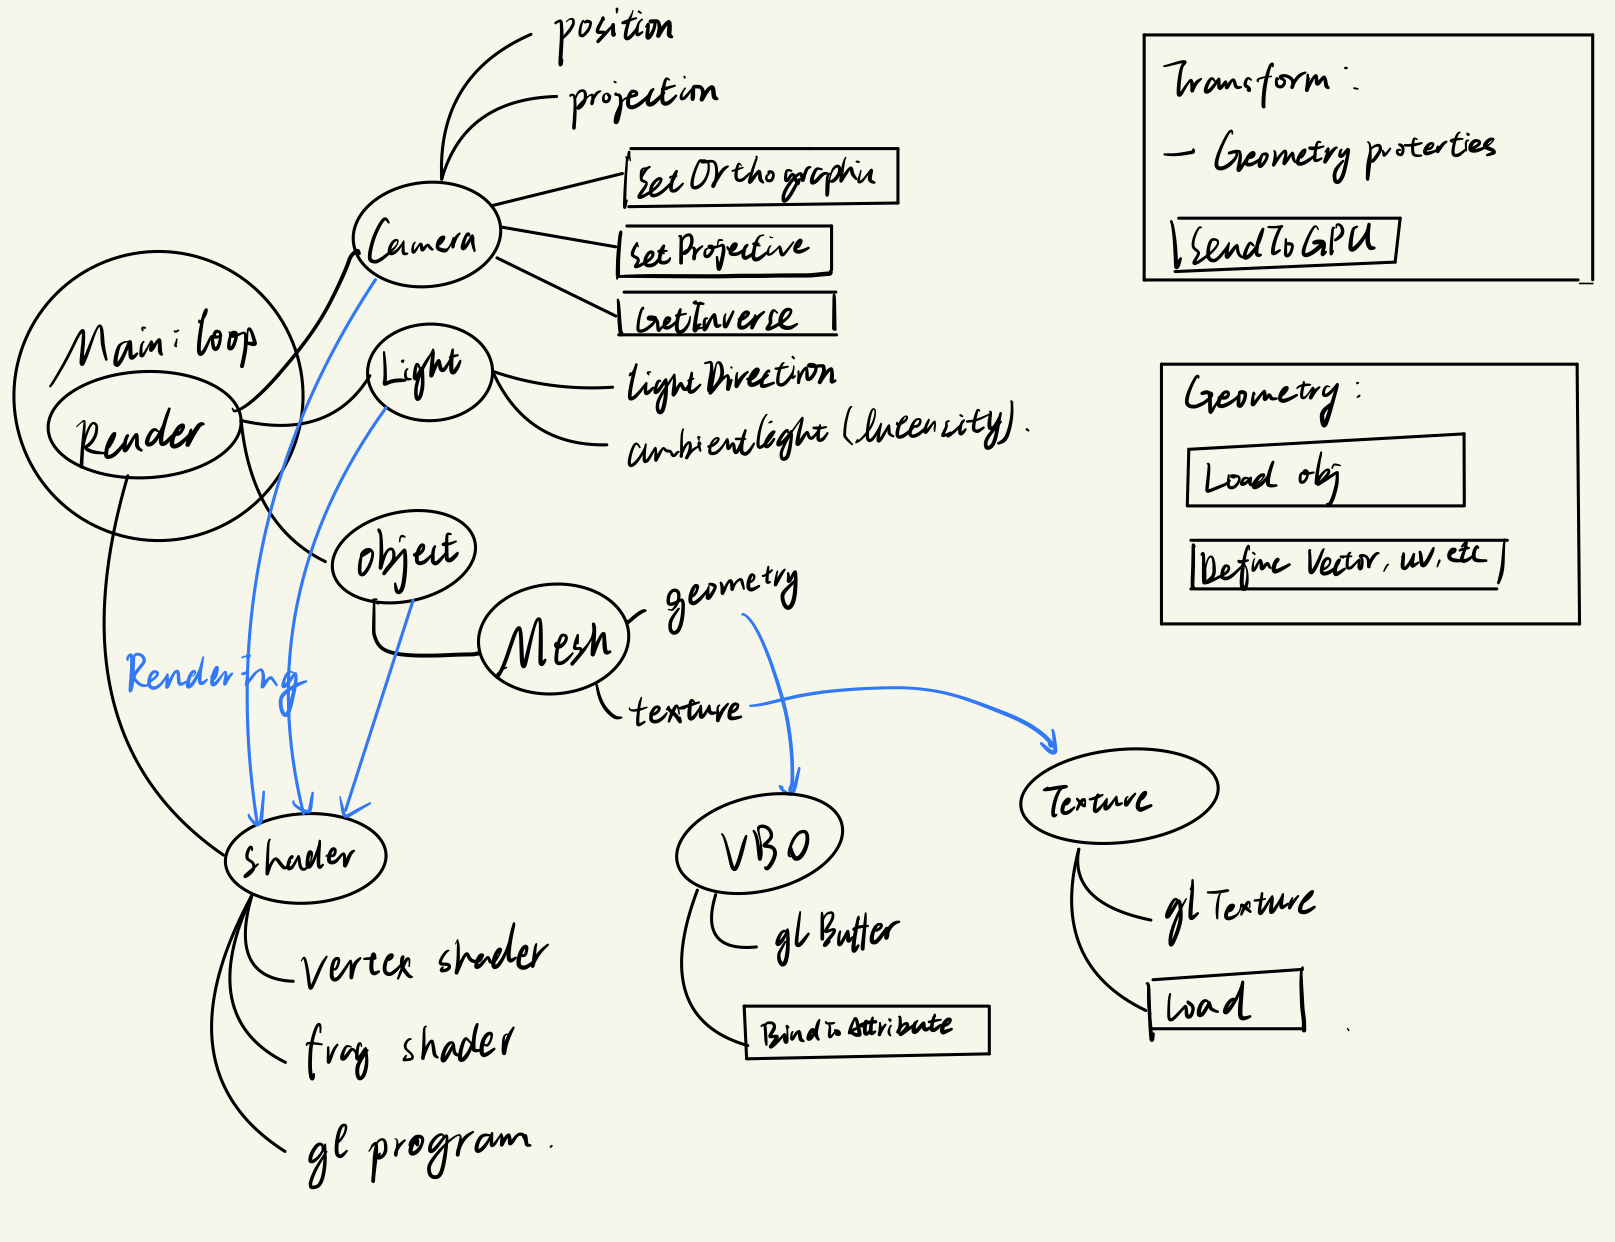 position
projection
SetOrthographic
Set Projective
GetInverse
Camera
Main: loop
Render
Light
lightDirection
ambientlight (Intensity).
object
Mesh
geometry
texture
Rendering
shader
vertex shader
frag shader
gl program.
VBO
gl Buffer
BindToAttribute
Texture
gl Texture
Load
Transform:
- Geometry properties
SendToGPU
Geometry:
Load obj
Define Vector, uv, etc